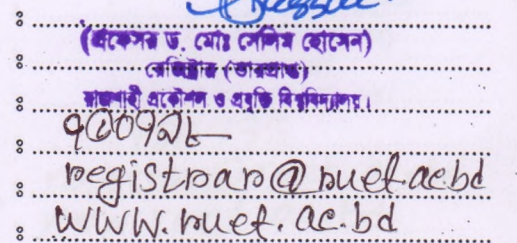 (প্রফেসর ড. মোঃ সেলিম হোসেন)
রেজিস্ট্রার (ভারপ্রাপ্ত)
রাজশাহী প্রকৌশল ও প্রযুক্তি বিশ্ববিদ্যালয়।
registrar@ruet.ac.bd
www.ruet.ac.bd